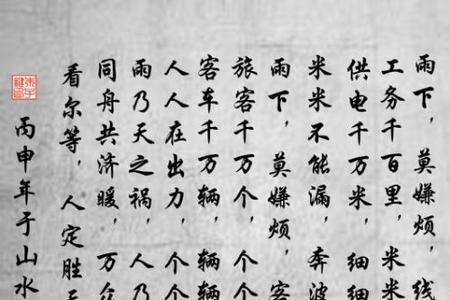 雨下，莫嫌烦，线
工务千百里，米米
供电千万米，细细
米米不能漏，奔波
雨下，莫嫌烦，客
旅客千万个，个个
客车千万辆，辆辆
人人在出力，个个
雨乃天之祸，人乃
同舟共济暖，万众
看尔等，人定胜天
丙申年于山水